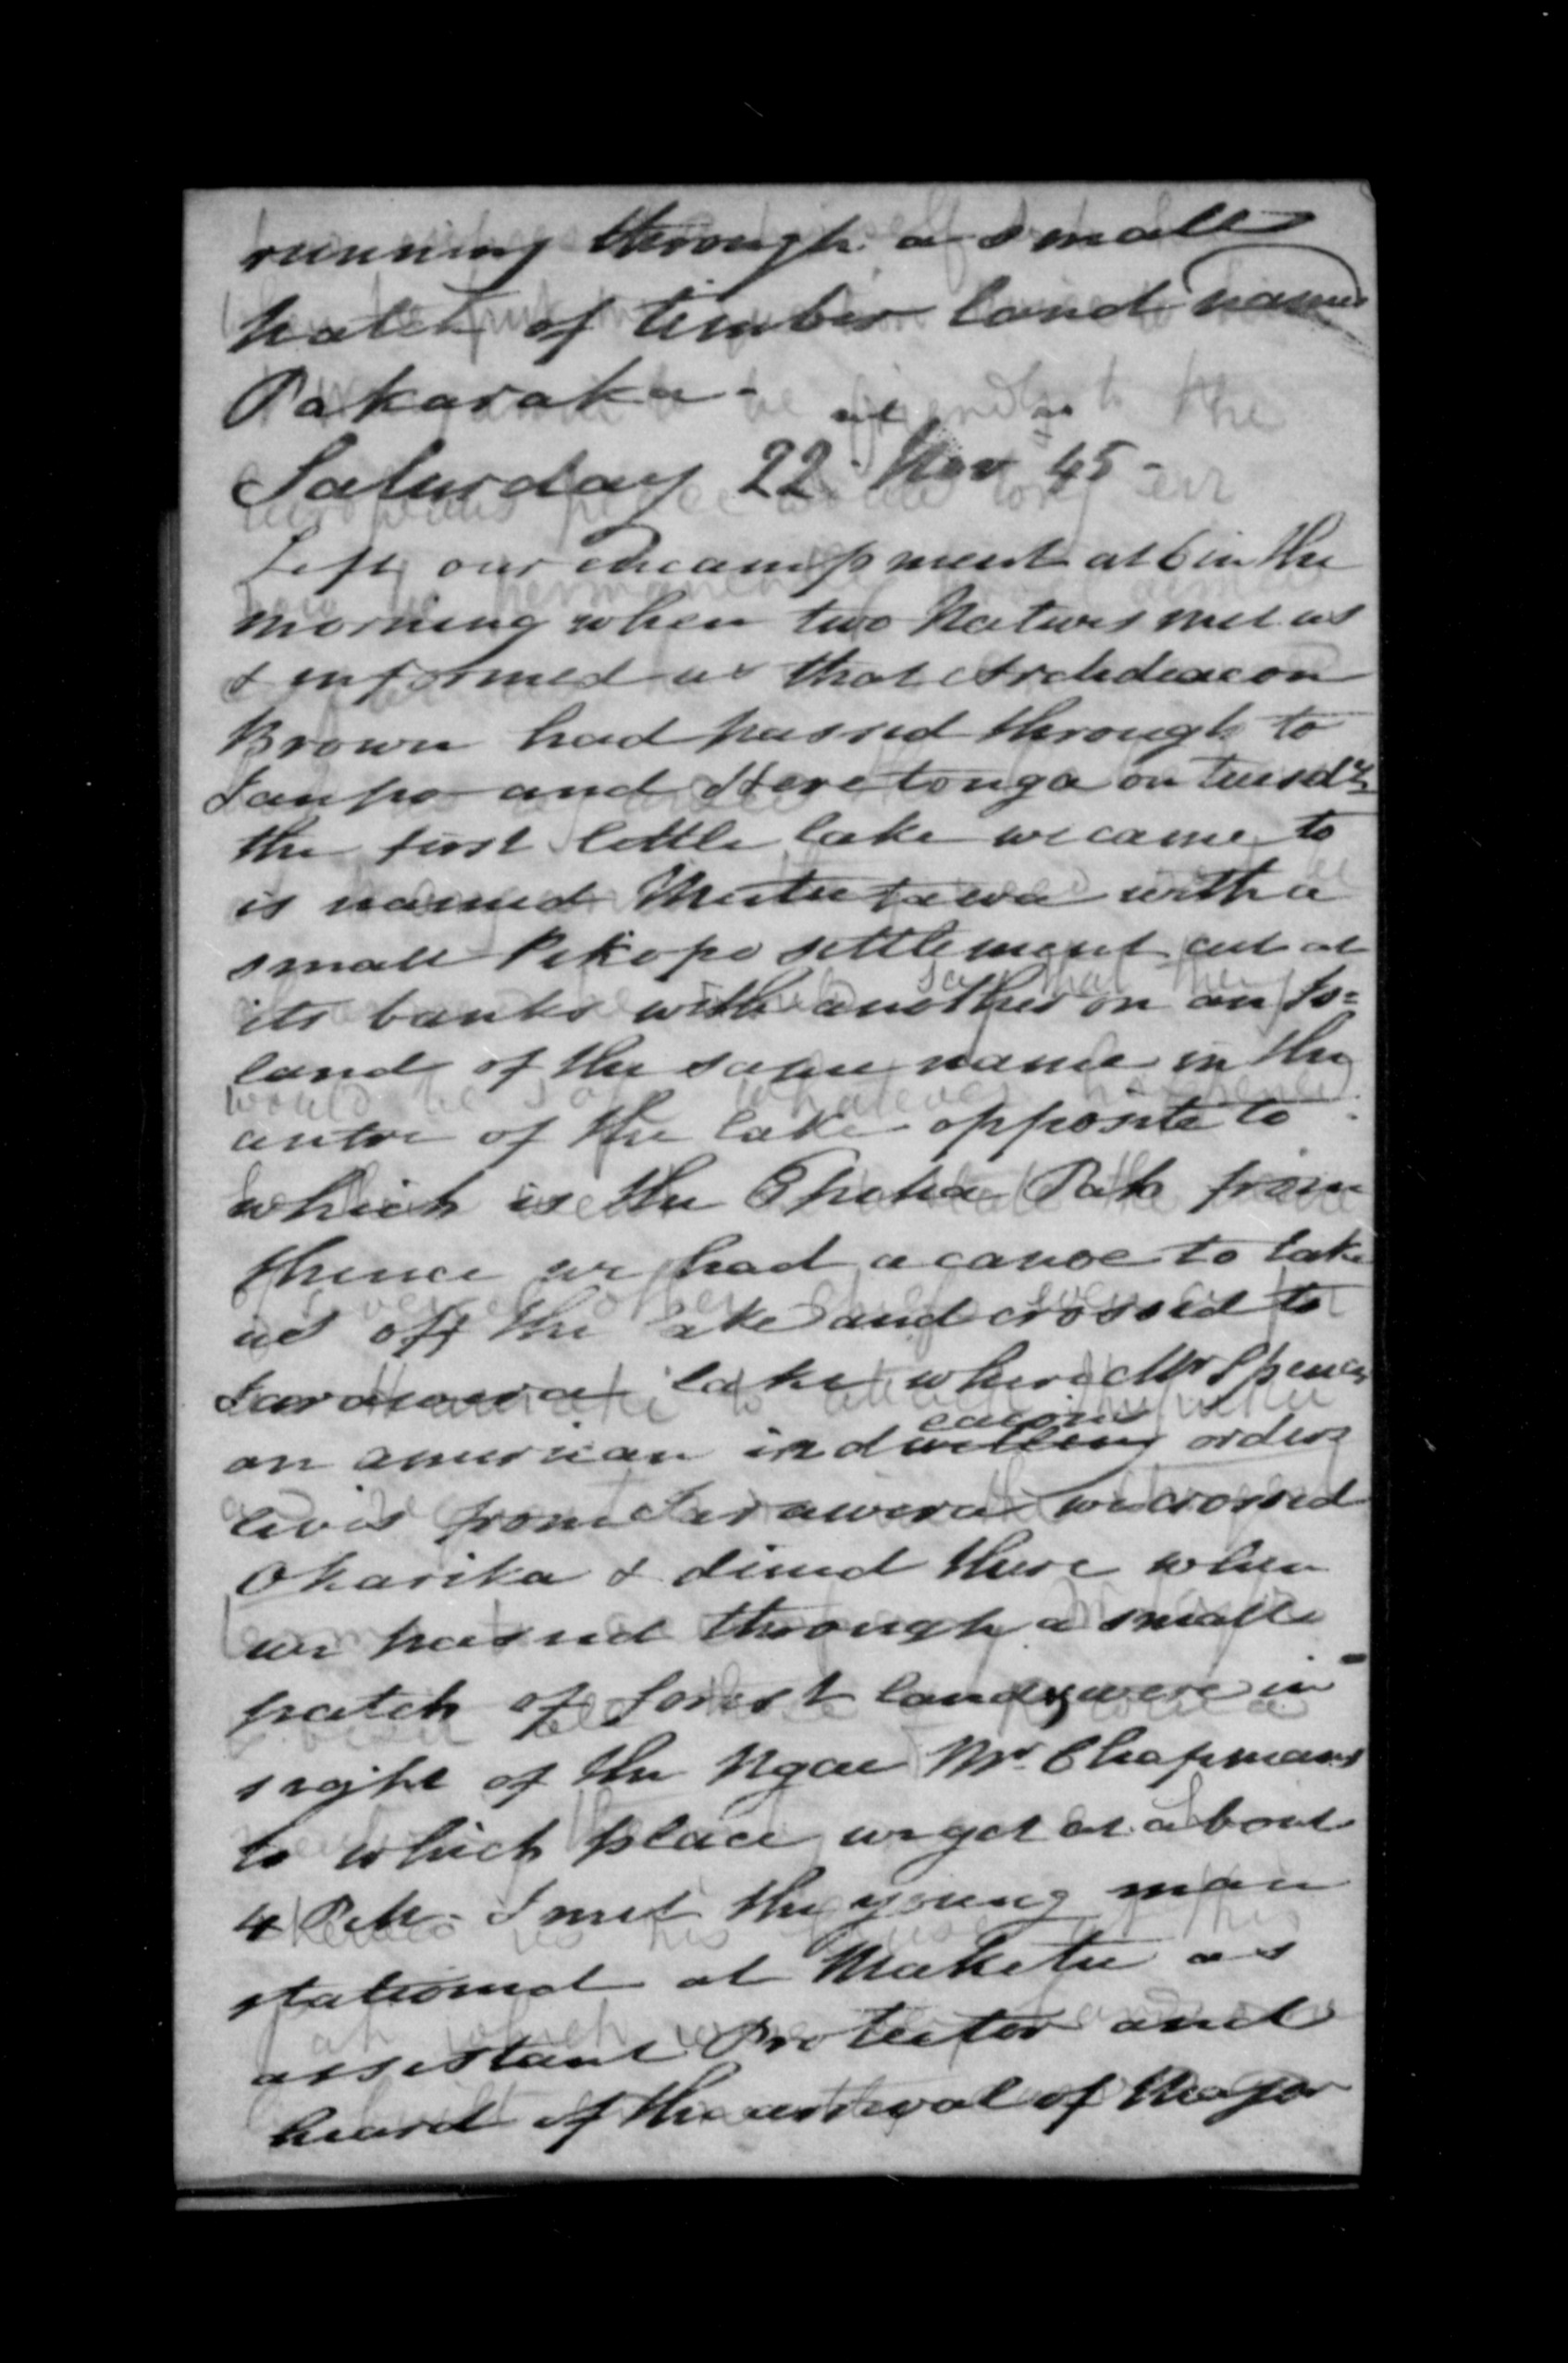 running through a small
patch of timber land name
Pakaraka -
Saturday 22nd Nov 45 -
Left our encampment at 6 in the
morning when two Natives met us
& informed us that Archdeacon
Brown had passed through to
Taupo and Heretonga on Tuesdy
the first little lake we came to
is named Mututawa with a
small Pikopo settlement at
its banks with another on an Is=
land of the same name in the
centre of the lake opposite to
which is the Epeha Pah from
thence we had a canoe to take
us off the lake and crossed to
Tarawera lake where Mr Spencer
an american in d eacons orders
lives from Tarawera we crossed
Okarika & dined there when
we passed through a small
patch of forest land & were in
sight of the Ngae Mr Chapmans
to which place we got at about
4 P.M. - I met the young man
stationed at Maketu as
assistant Protector and
heard of the arrival of Major